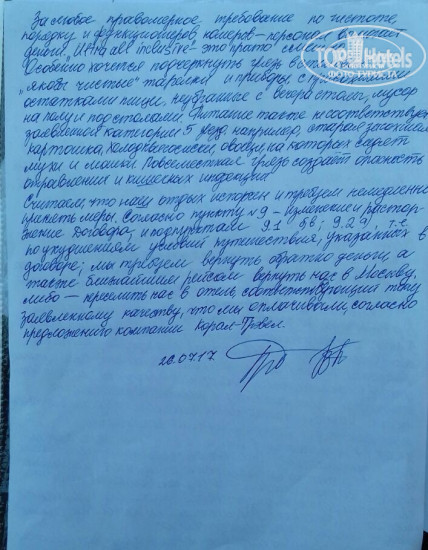 За любое правомерное требование по чистоте,
порядку и функционеров номеров - персонал
деньги, Ultra all inclusive - это просто
Особенно хочется подчеркнуть грязь в
"якобы чистые" тарелки и приборы, с
остатками пищи, неубранные с вечера столы, мусор
на полу и под столами. Питание также не соответствует
заявленной категории 5 например, старая
картошка, овощи, на которых сидят
мухи и мошки. Повсеместная грязь создаёт опасность
отравления и кишечных инфекций.
Считаем что наш отдых испорчен и требуем немедленно
принять меры. Согласно пункту №9 - Изменение и растор-
жение Договора; и подпунктам 9.1 9.2.9, т.е.
по ухудшениям условий путешествия, указанных в
договоре; мы требуем вернуть обратно деньги, а
также ближайшим рейсом вернуть нас в Москву.
либо - переселить нас в отель, соответствующий типу
заявленному качеству, что мы оплачивали, согласно
предложению компании Корал-Тревел.
26.07.17
TOP Hotels
ФОТО ТУРИСТА